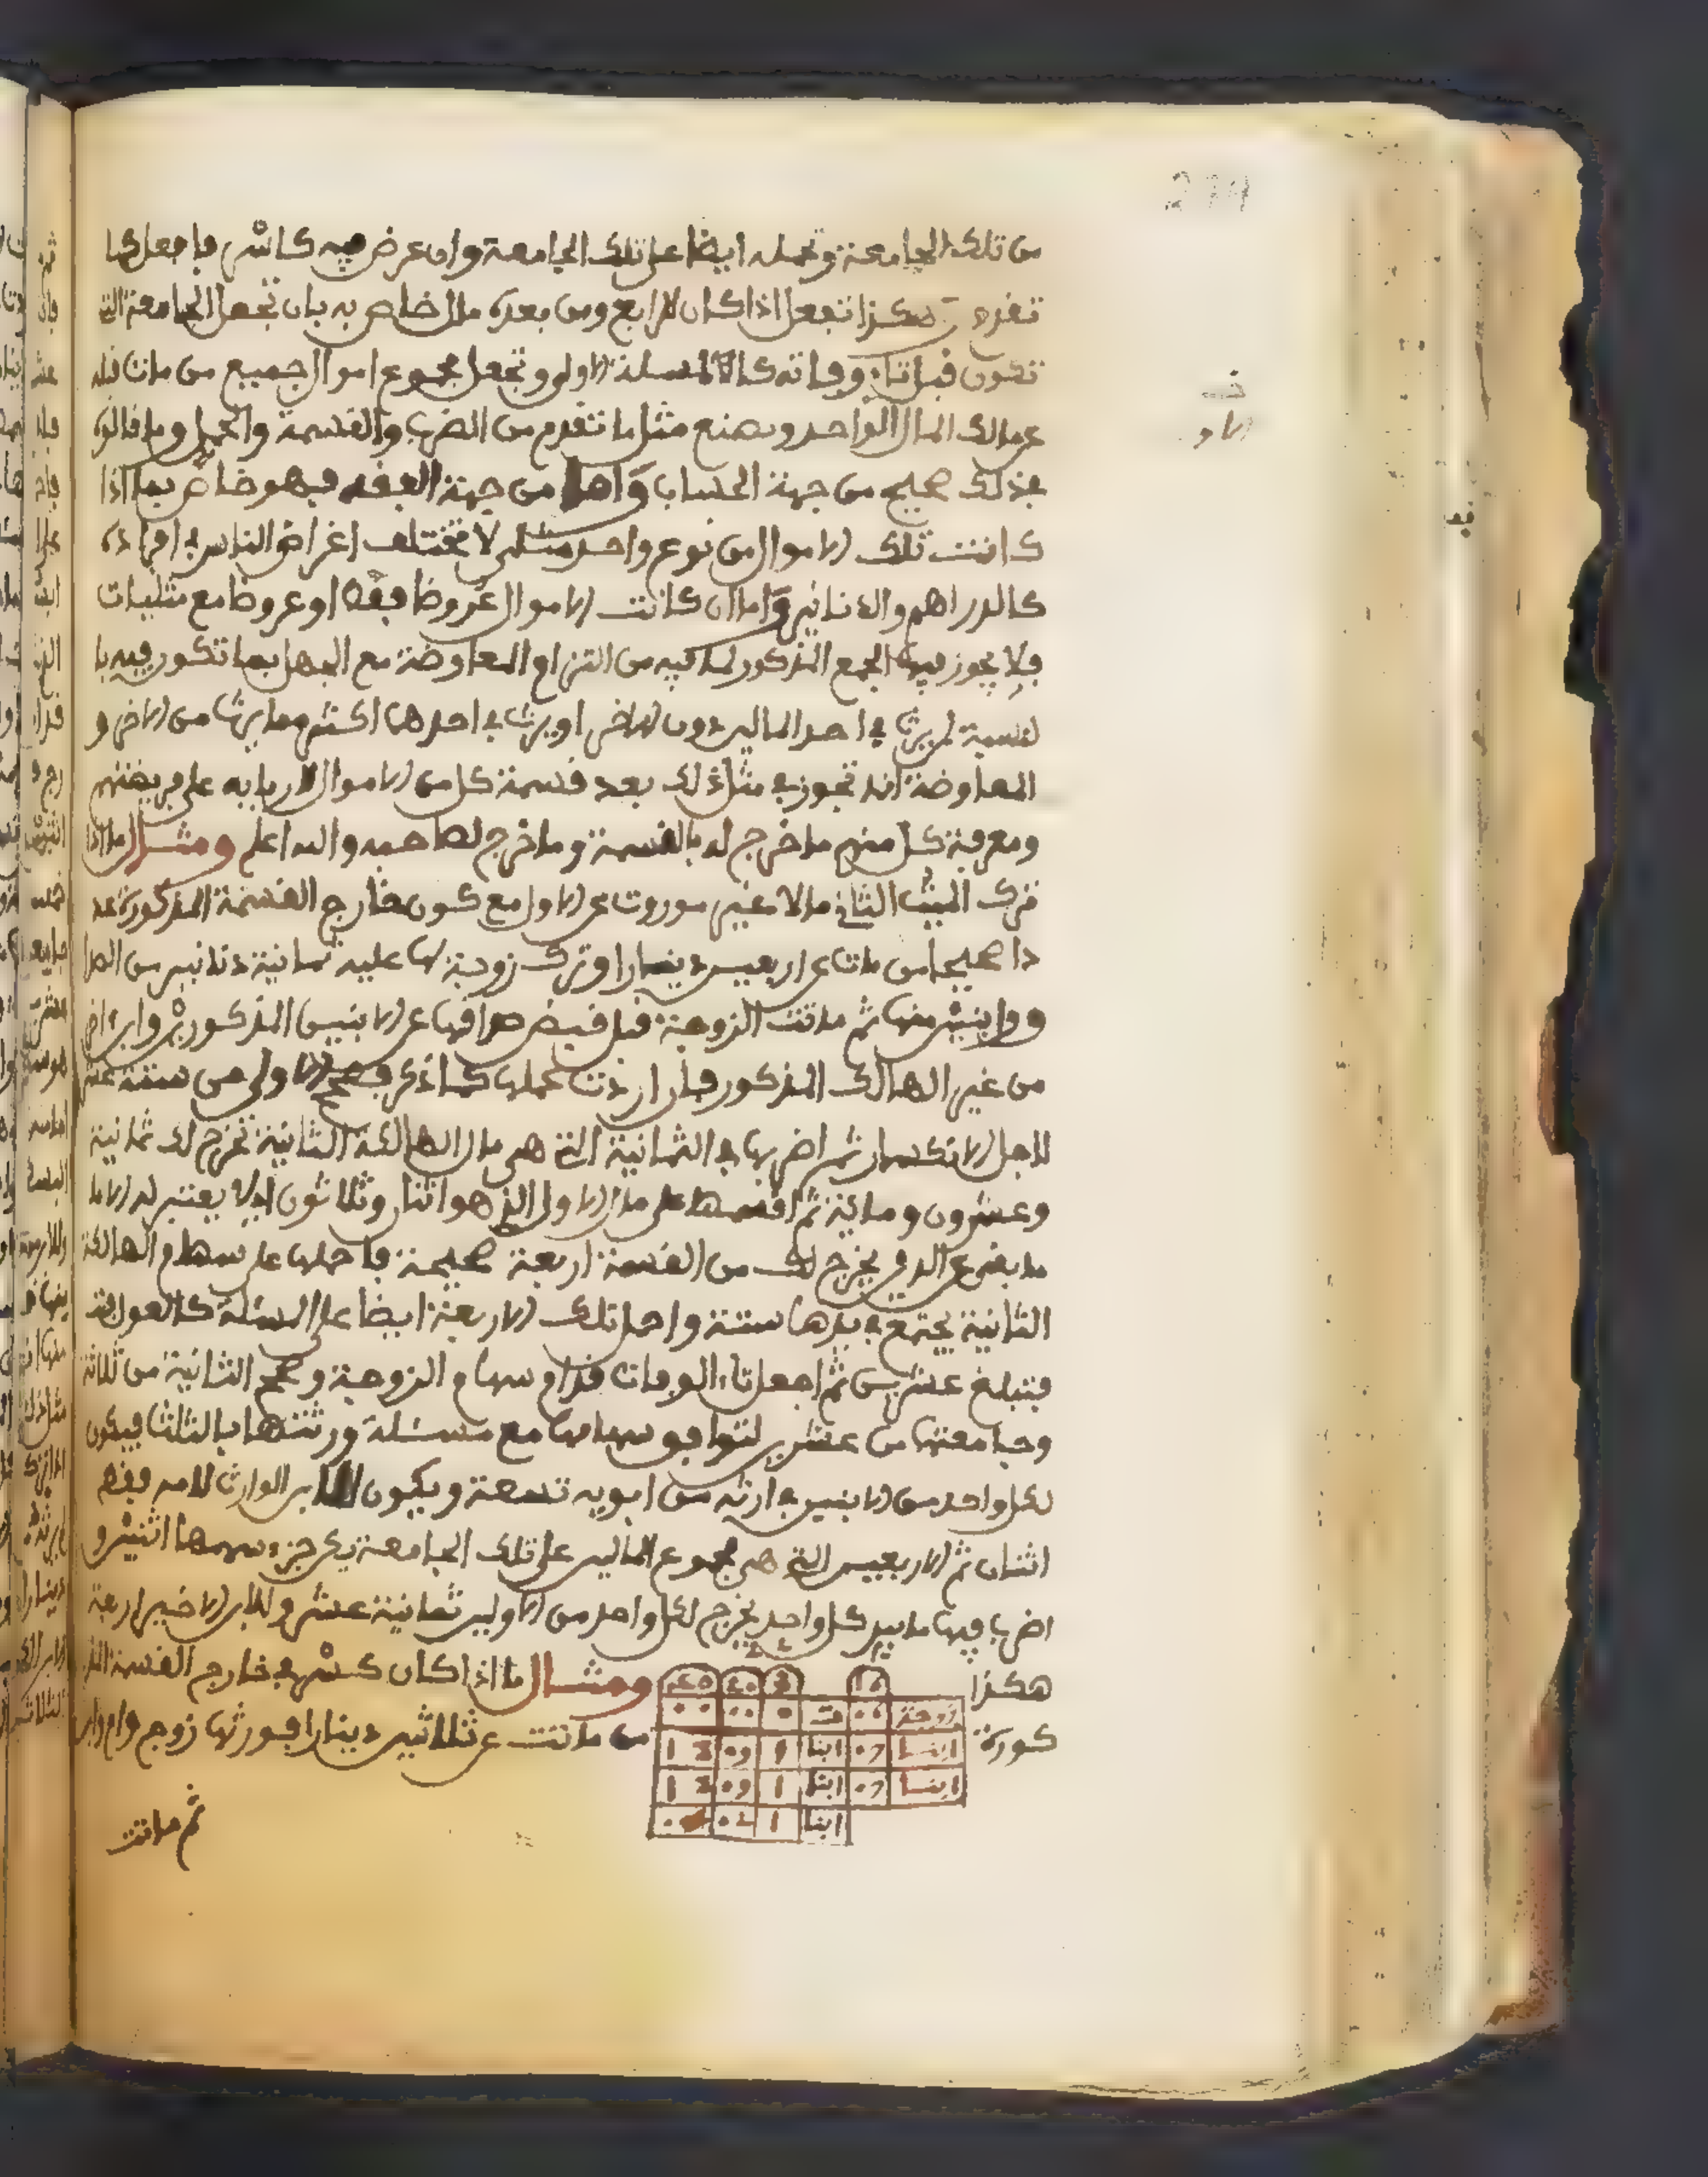 274
من تلك الجامعة وتحمله ايضا على تلك الجامعة وان عرض فيه كاشر فافعل كما
تقدم هكذا تفعل اذا كان لرابع ومن بعده مال خاص به بان تجعل الجامعة التي
تكون قبل تاء وفاته كالمسئلة الاولى وتجعل مجموع اموال جميع من مات قبله
كمالك المال الواحد وتصنع مثل ما تقدم من الضرب والقسمة والحمل وما قالوه
بذلك صحيح من جهة الحساب واما من جهة الفقه فهو خاص بما اذا
كانت تلك الاموال من نوع واحد مثلي لا تختلف اغراض الناس في افراده
كالدراهم والدنانير واما ان كانت الاموال عروضا فقط او عروضا مع مثليات
فلا يجوز فيها الجمع المذكور لما فيه من التزام المعاوضة مع الجهل بما تكون فيه با
لنسبة لمن يرث في احد المالين دون الاخر او يرث في احدهما اكثر مما يرث من الاخر و
المعاوضة انما تجوز في مثل ذلك بعد قسمة كل من الاموال لاربابه على فريضتهم
ومعرفة كل منهم ما خرج له بالقسمة وما خرج لصاحبه والله اعلم ومثال ما اذا
ترك الميت الثاني مالا غير موروث عن الاول مع كون خارج القسمة المذكورة عد
دا صحيحا من مات عن اربعين دينارا وترك زوجة لها عليه ثمانية دنانير من الصدا
ق وابنين منها ثم ماتت الزوجة قبل قبض صداقها عن الابنين المذكورين وابن اخر
من غير الهالك المذكور فان اردت عملها كما ذكر فصحح الاولى من ستة عشر
لاجل الانكسار ثم اضربها في الثمانية التي هي مال الهالكة الثانية تخرج لك ثمانية
وعشرون ومائة ثم اقسمها على مال الاول الذي هو اثنان وثلاثون اذ لا يعتبر له الا ما
ما بقي عن الدين يخرج لك من القسمة اربعة صحيحة فاحملها على سهام الهالكة
الثانية يجتمع في يدها ستة واحمل تلك الاربعة ايضا على المسئلة كالعول لها
فتبلغ عشرين ثم اجعل تاء الوفات قدام سهام الزوجة وصحح الثانية من ثلاثة
وجامعتها من عشرين لتوافق سهامها مع مسئلة ورثتها بالثلث فيكون
لكل واحد من الابنين في ارثه من ابويه تسعة ويكون للابن الوارث لامه فقط
اثنان ثم الاربعين التي هي مجموع المالين على تلك الجامعة يكن جزء سهمها اثنين و
اضرب فيها ما بيد كل واحد يخرج لكل واحد من الاولين ثمانية عشر وللابن الاخير اربعة
هكذا ومثال ما اذا كان كسر في خارج القسمة المذ
كورة من ماتت عن ثلاثين دينارا فورثها زوج وام وابن
زوجة ت
ابنا 07 ابنا 1 09 18
ابنا 07 ابنا 1 09 18
ابنا 1 02
ثم ماتت